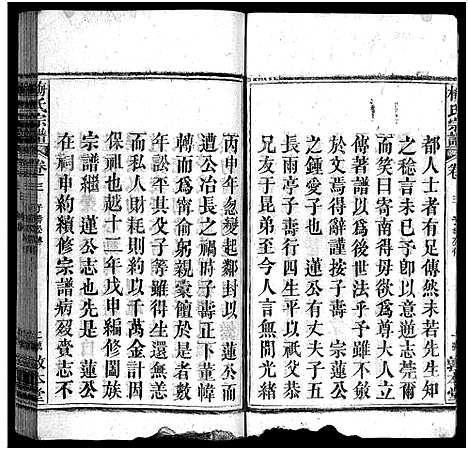 都人士者有足傳然未若先生知
之稔言未已予卽以意逊志莞爾
而笑曰寄南得毋欲爲尊大人立
傳著譜以爲後世法乎雖不斂
於文焉得辭謹按子壽 宗蓮公
之鍾愛子也 蓮公有丈夫子五
人子壽居長生平以祇父恭
兄友弟爲圭臬至今人言無間光緒
丙申年忽變起鄰封以 蓮公而
遭公冶長之禍時子壽正下董幃
轉而爲甯俞躬親橐饘於是者
年訟平其父子等雖還無恙
而私人財耗則約以十萬金計
保祖也越十三年戊申編修闔族
宗譜繼 蓮公志也先是 蓮公
在祠申約續修宗譜病殁賫志不
梅氏宗譜
卷三
敦本堂
梅氏宗譜
卷三